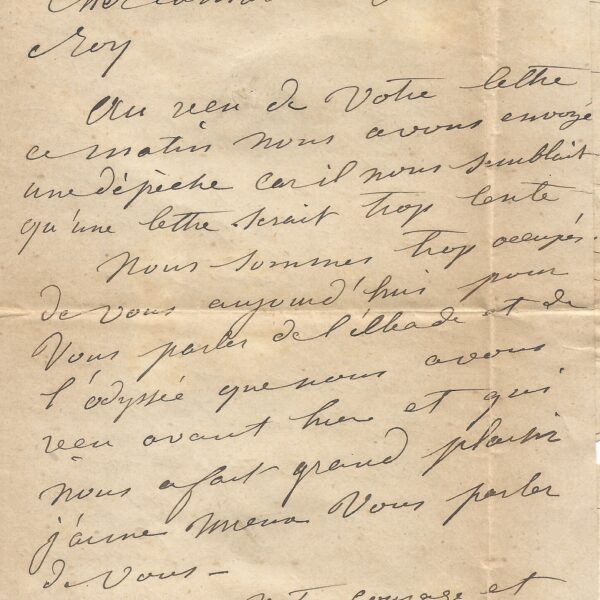 Roy
Au reçu de Votre lettre
ce matin nous avons envoyé
une dépèche car il nous semblait
qu'une lettre serait trop lente
Nous sommes trop occupés
de vous aujourd'hui pour
Vous parler de l'illiade et de
l'odyssée que nous avons
reçu avant hier et qui
nous a fait grand plaisir
j'aime mieux Vous parler
de Vous –
courage et